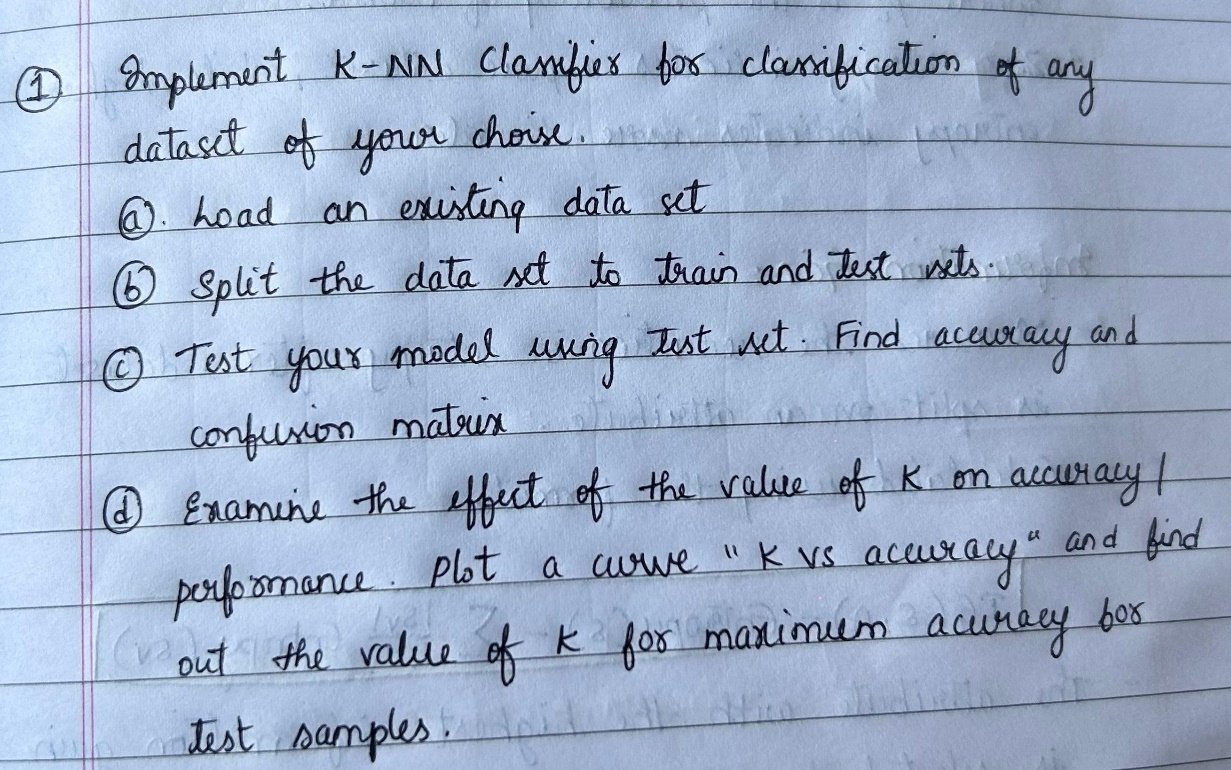 ① Implement K-NN Classifier for classification of any
dataset of your choise.
ⓐ. Load an existing data set
ⓑ Split the data set to train and test sets.
ⓒ Test your model using test set. Find accuracy and
confusion matrix
ⓓ Examine the effect of the value of K on accuracy /
performance. Plot a curve "K vs accuracy" and find
out the value of K for maximum acuracy for
test samples.